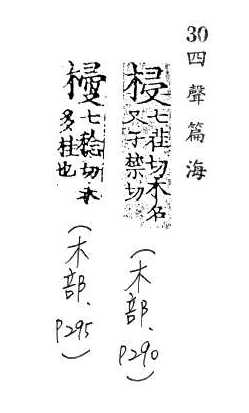 30 四聲篇海
梫 七荏切木名
又子禁切
（木部、P290）
七稔切木
多桂也
（木部、P295）